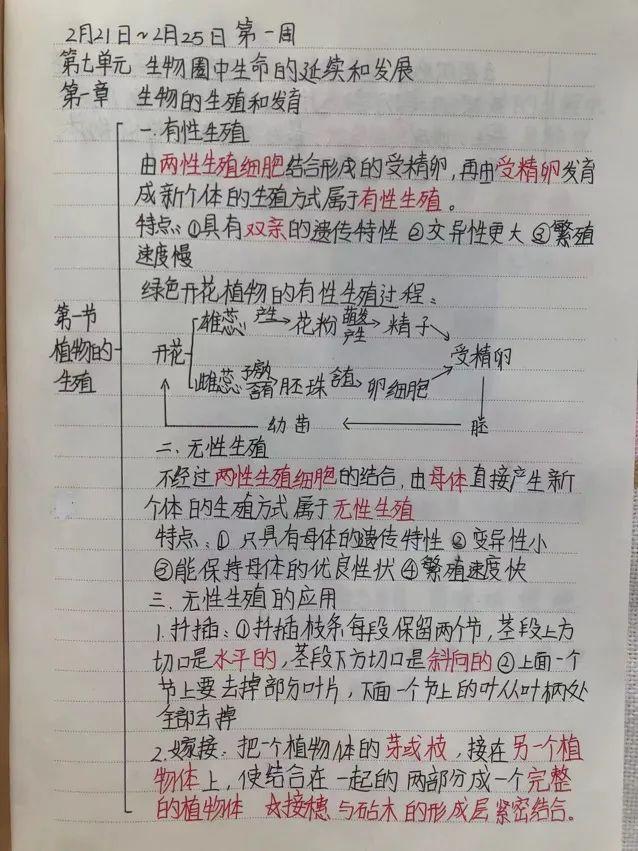 2月21日~2月25日 第一周
第七单元 生物圈中生命的延续和发展
第一章 生物的生殖和发育
一.有性生殖
由两性生殖细胞结合形成的受精卵,再由受精卵发育
成新个体的生殖方式属于有性生殖。
特点:①具有双亲的遗传特性 ②变异性更大 ③繁殖
速度慢
绿色开花植物的有性生殖过程:
第一节
植物的
生殖
开花
雄蕊 产生 花粉 萌发 产生 精子
受精卵
雌蕊 子房内 含有 胚珠 含有 卵细胞
幼苗 胚
二.无性生殖
不经过两性生殖细胞的结合,由母体直接产生新
个体的生殖方式属于无性生殖
特点:① 只具有母体的遗传特性 ② 变异性小
③能保持母体的优良性状 ④繁殖速度快
三.无性生殖的应用
1.扦插:①扦插枝条每段保留两个节,茎段上方
切口是水平的,茎段下方切口是斜向的 ②上面一个
节上要去掉部分叶片,下面一个节上的叶从叶柄处
全部去掉
2.嫁接:把一个植物体的芽或枝,接在另一个植
物体上,使结合在一起的两部分成一个完整
的植物体 ☆接穗与砧木的形成层紧密结合。